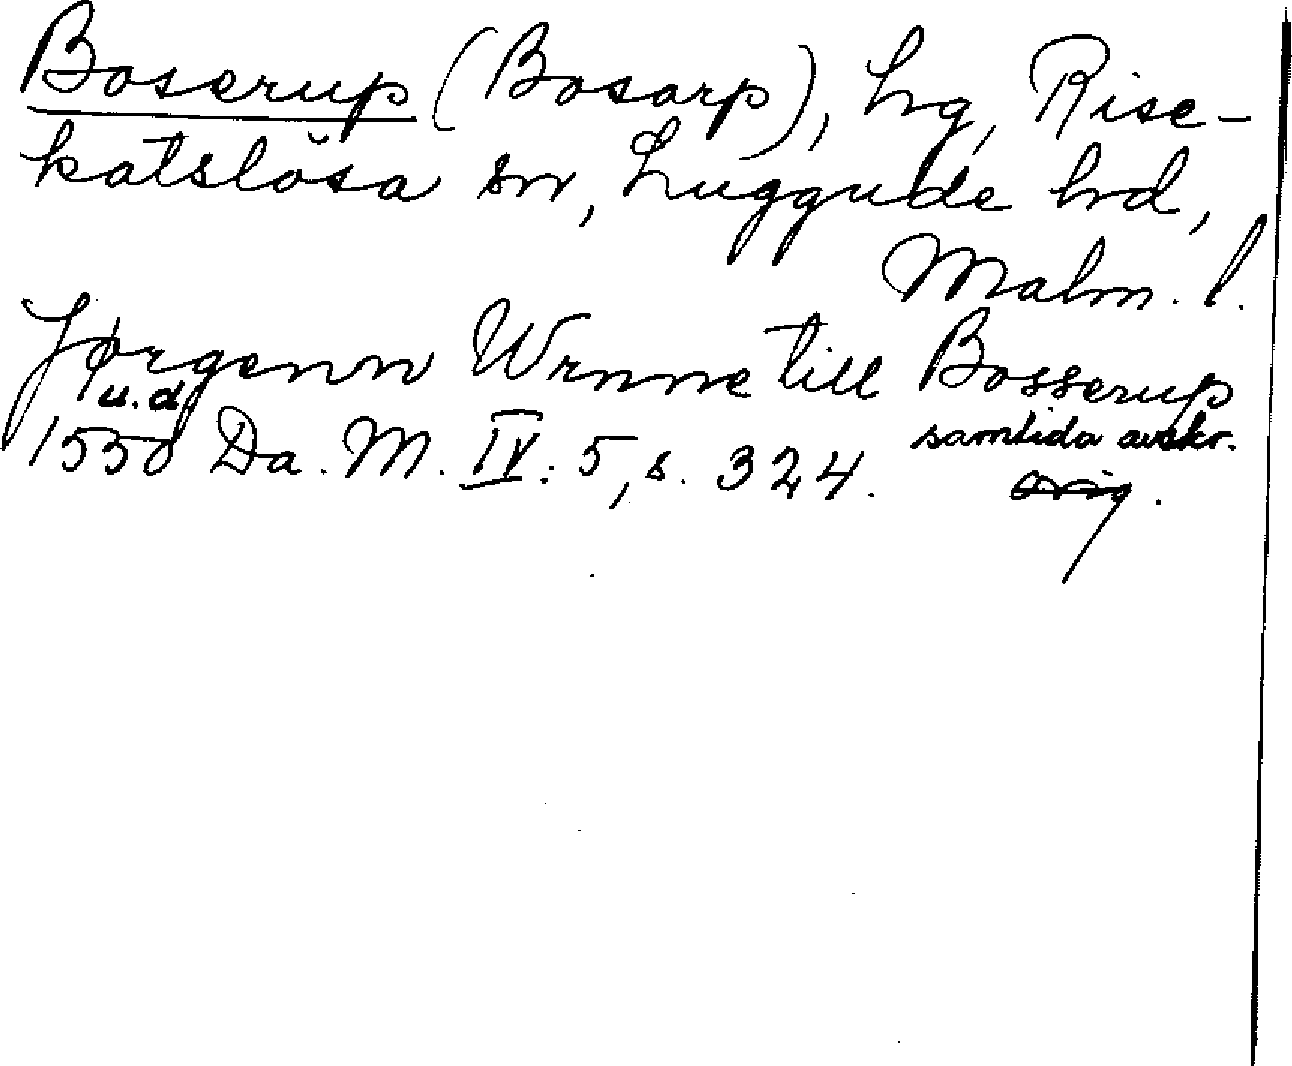 Boserup (Bosarp), hg, Rise-
katslösa sn, Luggude hd,
Malm. l.
Jørgenn Wrnne till Bosserup
u.d.
1550 Da. M. IV: 5, s. 324. samtida avskr.
orig.